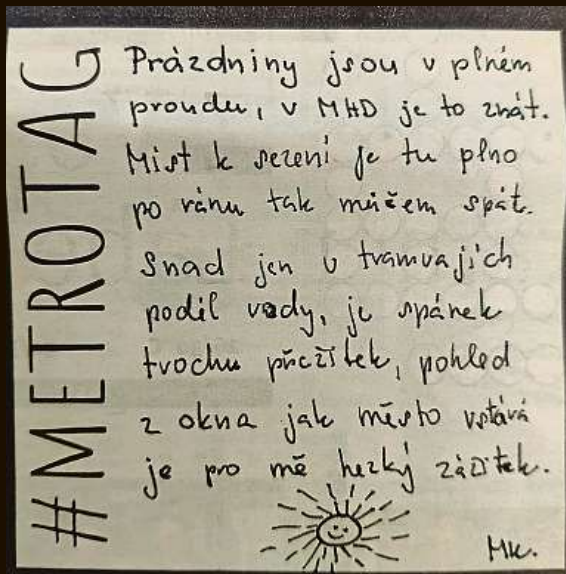 #METROTAG
Prázdniny jsou v plném
proudu, v MHD je to znát.
Míst k sezení je tu plno
po ránu tak můžem spát.
Snad jen v tramvajích
podél vody, je spánek
trochu přežitek, pohled
z okna jak město vstává
je pro mě hezký zážitek.
MK.